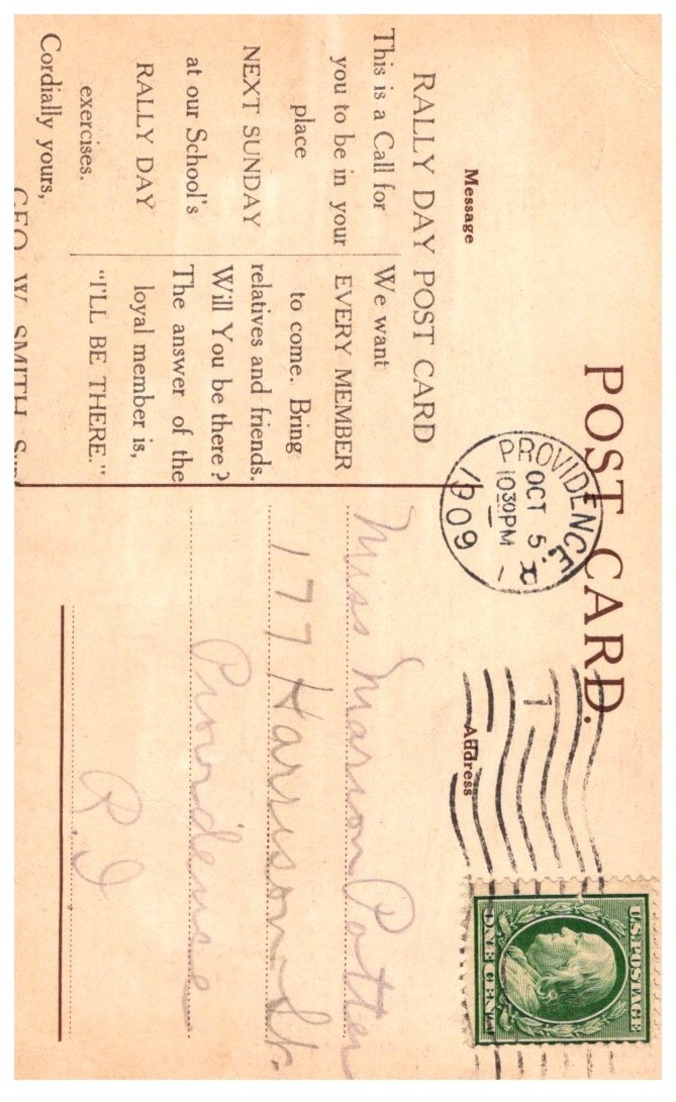 POST CARD.
Message
RALLY DAY POST CARD
This is a Call for
you to be in your
place
NEXT SUNDAY
at our School's
RALLY DAY
exercises.
Cordially yours,
We want
EVERY MEMBER
to come. Bring
relatives and friends.
Will You be there?
The answer of the
loyal member is,
"I'LL BE THERE."
GEO. W. SMITH,
PROVIDENCE
OCT 5
1030PM
1909
1
Address
U.S. POSTAGE
ONE CENT
Miss Marion Potter
177 Harrison St.
Providence
R.I